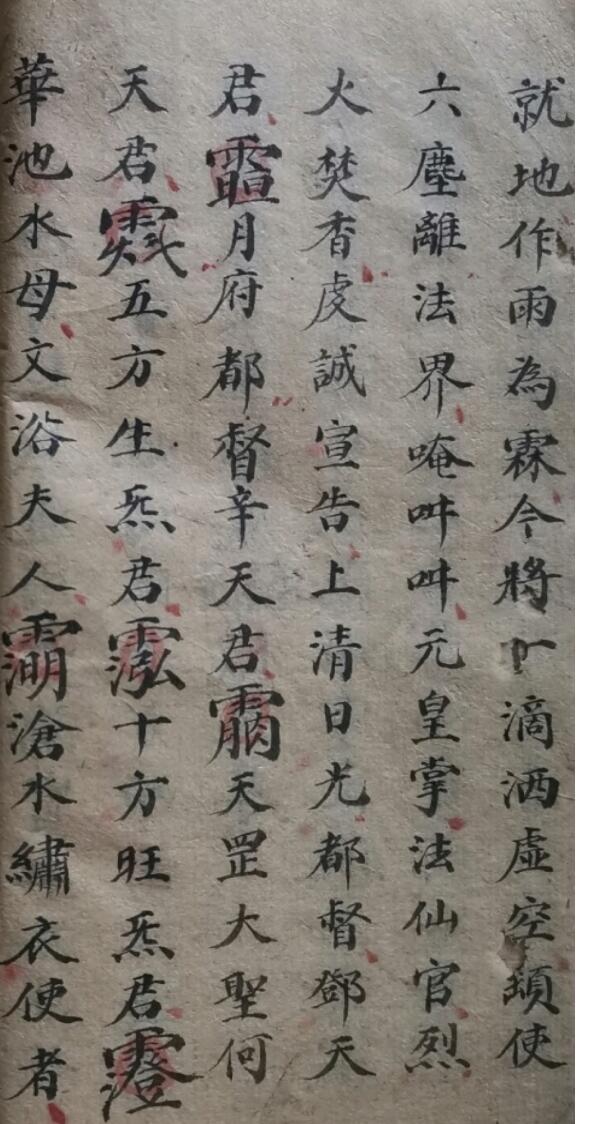 就地作雨為霖今將一滴洒虛空頓使
六塵離法界唵吽吽元皇掌法仙官烈
火焚香虔誠宣告上清日光都督鄧天
君月府都督辛天君天罡大聖何
天君五方生炁君十方旺炁君
華池水母文浴夫人滄水繡衣使者